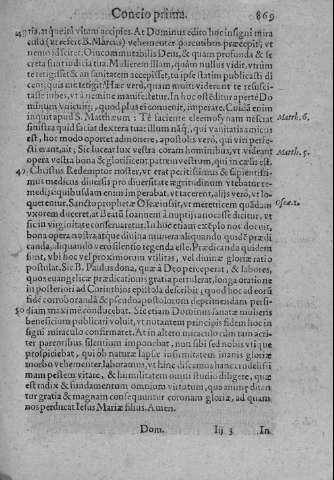 Concio prima. 869
gria, atque ita vitam accipies. At Dominus edito hoc insigni mira
culo (vt refert B. Marcus) vehementer parentibus præcepit, vt
nemo id sciret. O incommutabilis Deus, & quam profunda & se
creta sunt iudicia tua. Mulierem illam, quam nullus vidit, vt vnim
te tetigisset & an sanitatem accepisset, tu ipse statim publicasti di
cens, quis me tetigit? Hæc verò, quam multi viderunt te resusci-
tasse iubes, vt à nemine manifestetur. In hoc ostēditur aperte Do
minum vnicuiq; quod plus ei conuenit, imperate. Cuidā enim
inquit apud S. Matthæum: Te faciente eleemosynam nesciat Matth. 6.
sinistra quid faciat dextera tua: illum nāq; qui vanitatis amicus
est, hoc modo oportet admonere, apostolis verò, qui vin perfe-
cti erant, ait; Sic luceat lux vestra coram hominibus, vt videant Matth. 5.
opera vestra bona & glorificent patrem vestrum, qui in cœlis est.
Christus Redemptor noster, vt erat peritissimus & sapientissi-
mus medicus diuersis pro diuersitate ægritudinum vtebatur re-
medijs: quibusdam enim imperabat, vt tacerent, alijs verò, vt lo-
quetentur. Sancto prophetæ Oseæ iussit, vt meretricem quādam Oseæ. 1.
vxorem duceret, at Beatū Ioannem à nuptijs auocasse dicitur, vt
sic in virginitate conseruaretur. In hoc etiam exēplo nos docuit,
bona opera nostra atque diuina munera aliquando quidē prædi
canda, aliquando verò silentio tegenda esse. Prædicanda quidem
sunt, vbi hoc vel proximorum vtilitas, vel diuinæ gloriæ ratio
postulat. Sic B. Paulus dona, quæ à Deo perceperat, & labores,
quos euangelicæ prædicationis gratia pertulerat, longa oratione
in posteriori ad Corinthios epistola describit, quod hoc ad eorū
fidē corroborandā & pseudoapostolorum deprimendam perfi-
50 diam maximè conducebat. Sic etiam Dominus sanatæ mulieris
beneficium publicari voluit, vt nutantem principis fidem hoc in
signi miraculo confirmaret. At in altero miraculo cùm tam acri-
ter parentibus silentium imponebat, non sibi sed nobis vtique
prospiciebat, qui ob naturæ lapsæ infirmitatem inanis gloriæ
morbo vehementer laboramus, vt hinc discamus hanc crudelissi
mam pestem vitare, & humilitatem omni studio diligere, quæ
est radix & fundamentum omnium virtutum, qua annuente dinan
tur gratia & magnam consequuntur coronam gloriæ, ad quam
nos perducat Iesus Mariæ filius. Amen.
Dom. Iij 3 In